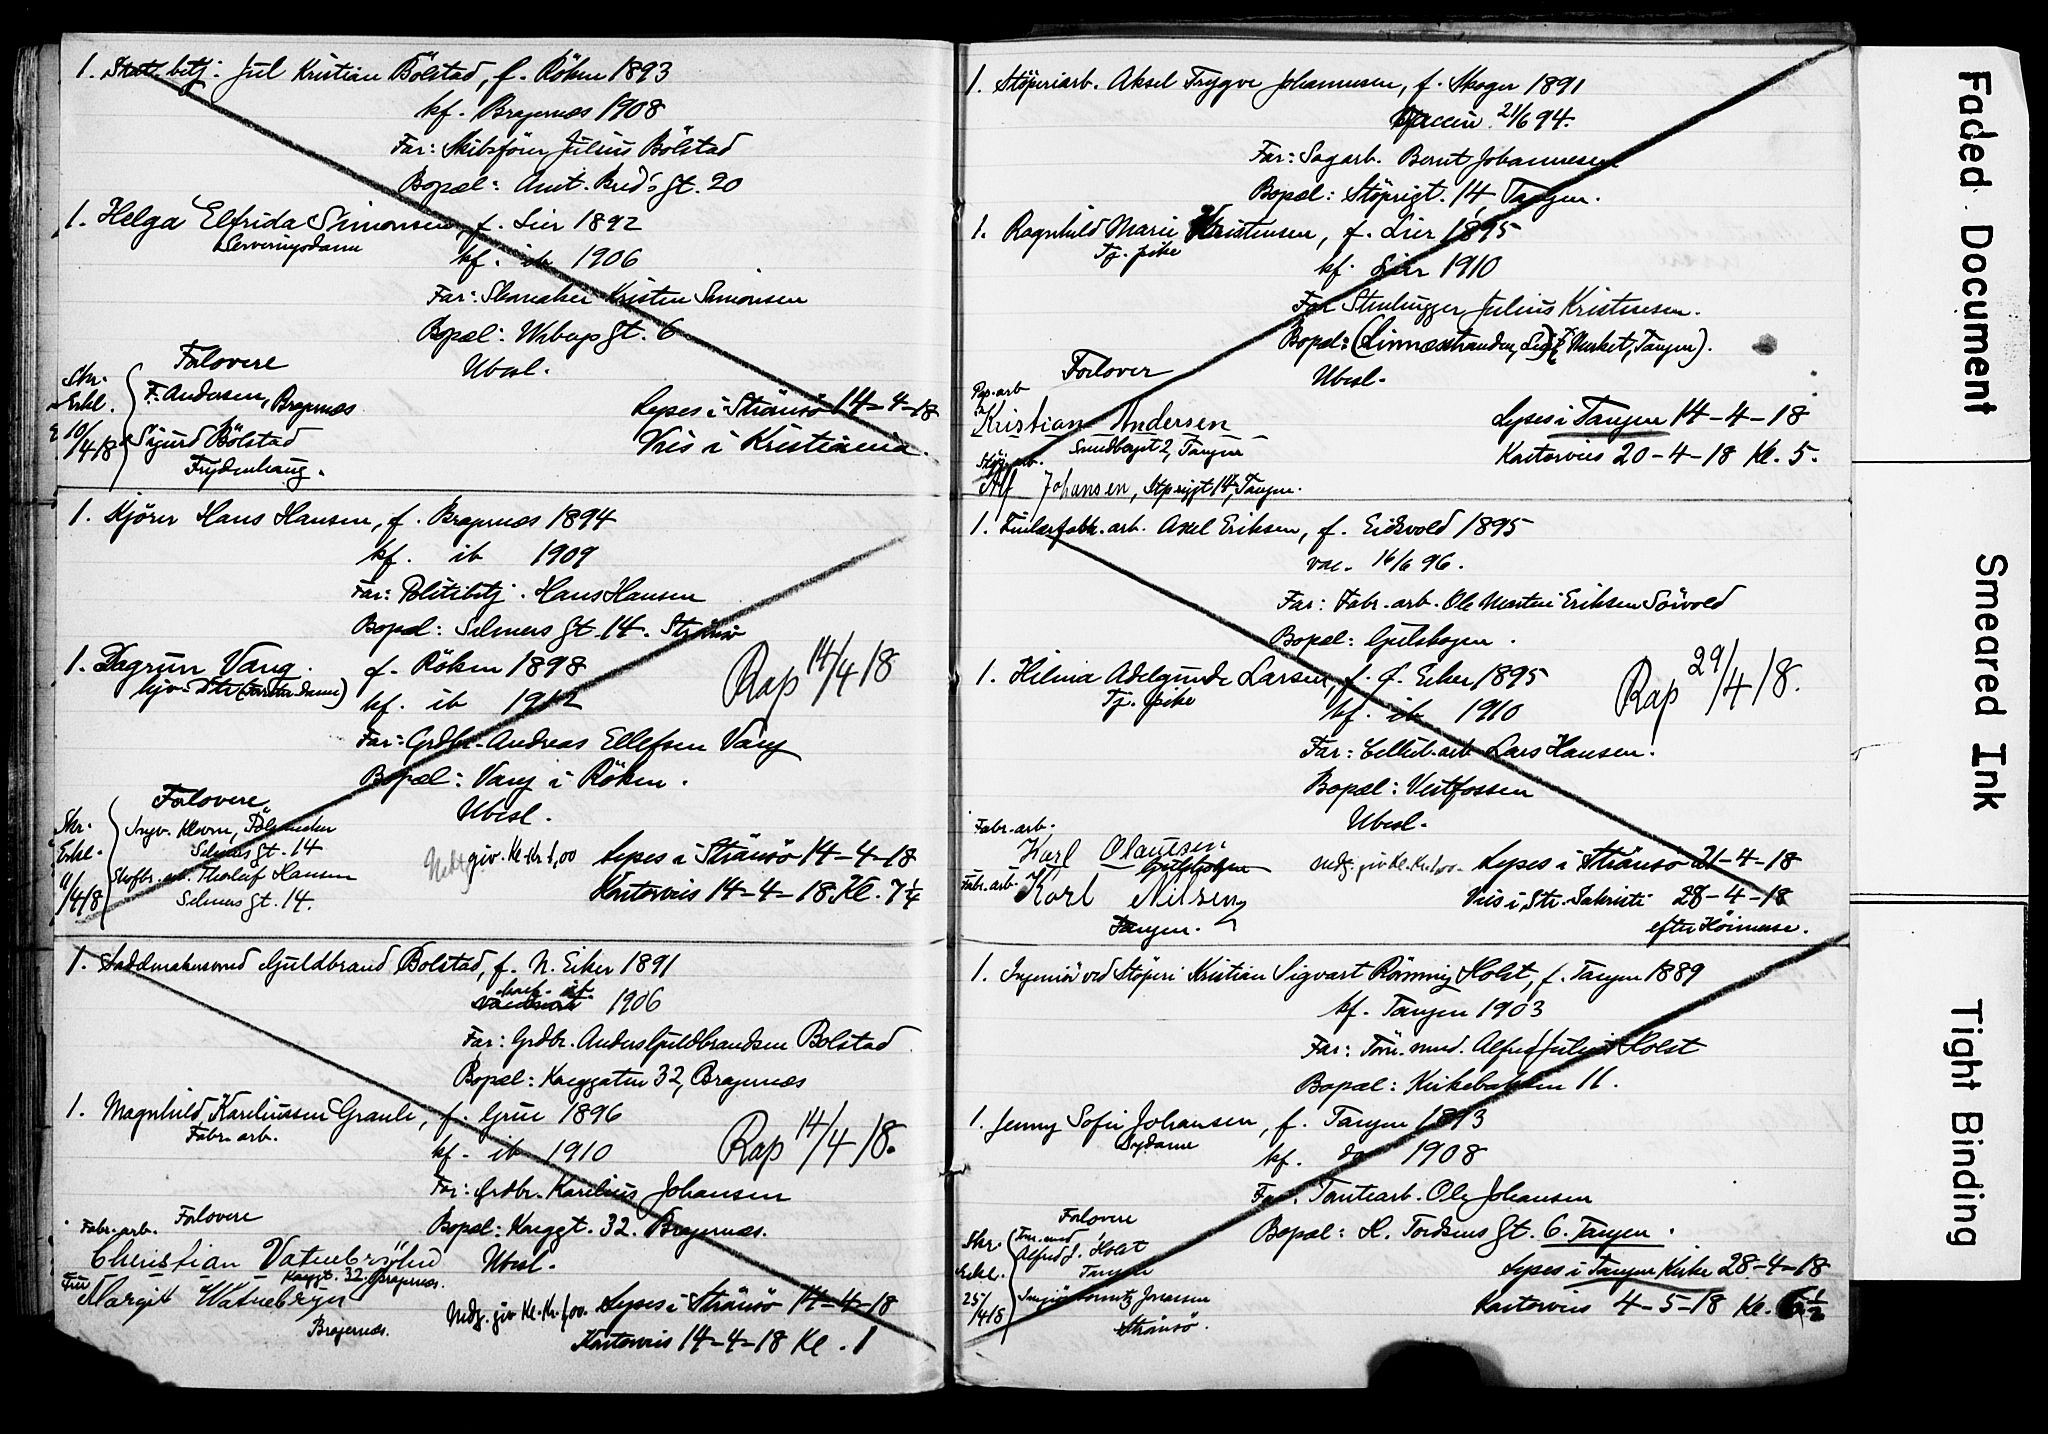 1. betj. Jul Kristian Bölstad, f. Röken 1893
kf. Bragernæs 1908
Far: Skibsförer Julius Bölstad
Bopæl: Amt. Bred's gt. 20
1. Helga Elfrida Simonsen, f. Lier 1892
Serveringsdame
kf. ib 1906
Far: Skomaker Kristen Simonsen
Bopæl: gt. 6
Ubesl.
Forlovere
Skr.
Erkl.
10/4 18
F. Andersen, Bragernæs
Sigurd Bölstad
Frydenhaug.
Lyses i Strömsö 14-4-18
Vies i Kristiania.
1. Kjörer Hans Hansen, f. Bragernæs 1894
kf. ib 1909
Far: Politibetj. Hans Hansen
Bopæl: Selmers gt. 14. Strömsö
1. Dagrun Vang. f. Röken 1898
kf. ib 1912
Rap 14/4 18
Far: Grdbr. Andreas Ellefsen Vang
Bopæl: Vang i Röken.
Ubesl.
Forlovere
Skr.
Erkl.
11/4 18
Selmers gt. 14
Thorleif Hansen
Selmers gt. 14.
giv. Kl. Kr. 1,00 Lyses i Strömsö 14-4-18
Kontorvies 14-4-18 Kl. 7 1/4
1. Saddmakersvend Guldbrand Bolstad, f. N. Eiker 1891
ib 1906
Far: Grdbr. Anders Guldbrandsen Bolstad
Bopæl: Kneggaten 32, Bragernæs
1. Magnhild Kareliussen Graule, f. Grue 1896
Fabr. arb.
kf. ib 1910
Rap 14/4 18.
Far: Grdbr. Karelius Johansen
Bopæl: Kneggt. 32. Bragernæs.
Ubesl.
Forlovere
Fabr. arb.
Christian Vatnebryhn
Kneggt. 32, Bragernæs.
Fru Margit Watnebryn
Bragernæs.
Nedg. giv. Kl. Kr. 1,00. Lyses i Strömsö 14-4-18
Kontorvies 14-4-18 Kl. 1
1. Stöperiarb. Aksel Trygve Johannesen, f. Skoger 1891
Vaccin. 21/6 94.
Far: Sagarb. Bernt Johannesen
Bopæl: Stöperigt. 14, Tangen.
1. Ragnhild Marie Kristensen, f. Lier 1895
Tj. pike
kf. Lier 1910
Far Stenhugger Julius Kristensen.
Bopæl: (Linnesstranden, Lier) Tangen).
Ubesl.
Forlover
Pap. arb
Kristian Andersen
Sundbergt 2, Tangen
Stöp. arb.
Alf Johansen, Stperigt 14, Tangen.
Lyses i Tangen 14-4-18
Kontorvies 20-4-18 Kl. 5.
1. arb. Axel Eriksen, f. Eidsvold 1895
vac. 16/6 96.
Far: Fabr. arb. Ole Martin Eriksen
Bopæl: Gulskogen.
1. Hilma Adelgunde Larsen, f. Ö. Eiker 1895
Tj. pike
kf. ib 1910
Rap 29/4 18.
Far: Cellul. arb. Lars Hansen.
Bopæl: Vestfossen
Ubesl.
Fabr. arb.
Karl Olausen
Gulskogen
Fabr. arb. Karl Nilsen
Tangen.
Nedg. giv. Kl. Kr. 1,00. Lyses i Strömsö 21-4-18
Vies i Str. Sakristi 28-4-18
efter Höimesse.
1. Ingeniör ved Stöperi Kristian Sigvart Römmig Holst, f. Tangen 1889
kf. Tangen 1903
Far: Töm. mand. Alfred Julius Holst
Bopæl: Kirkebakken 11.
1. Jenny Sofie Johansen, f. Tangen 1893
Sydame
kf. do 1908
Far: Tomtearb. Ole Johansen
Bopæl: H. Tordsens gt. 6. Tangen.
Forlovere
Skr.
Erkl.
25/4 18
Töm. mand
Alfred J. Holst
Tangen
Strömsö.
Lyses i Tangen Kirke 28-4-18
Kontorvies 4-5-18 Kl. 6 1/2
Faded Document
Smeared Ink
Tight Binding